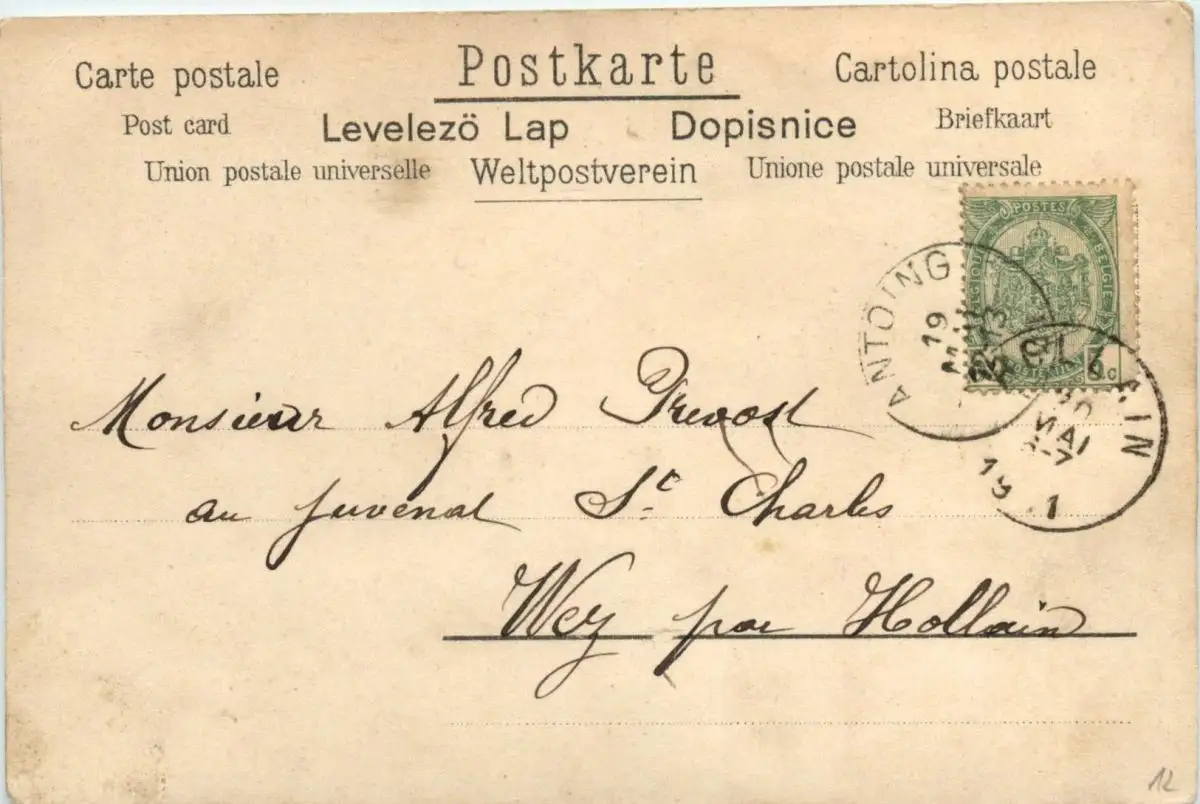 Postkarte
Carte postale Cartolina postale
Post card Levelezö Lap Dopisnice Briefkaart
Union postale universelle Weltpostverein Unione postale universale
POSTES
ANTOING
19
MAI
Monsieur Alfred Prevost
au juvenat St Charles
Wez par Hollain
MAI
19 1
12